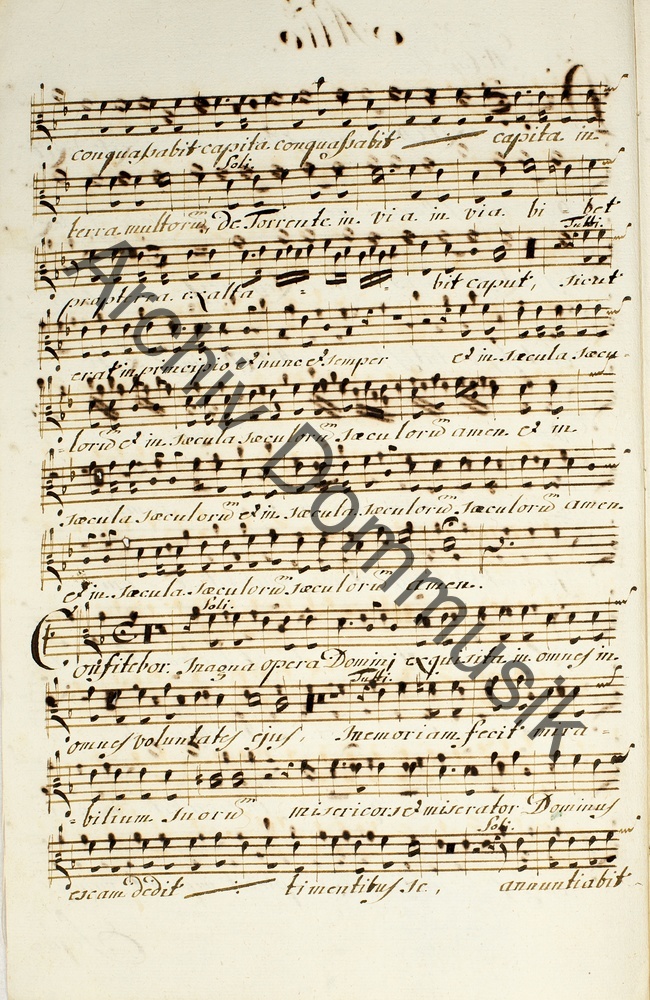 conquaſsabit capita conquaſsabit capita in
Soli.
terra multorum̅ De Torrente in via in via bi - bet
Tutti.
propterea exalta - - bit caput, sicut
erat in principio et nunc et semper et in sæcula sæcu-
-lorum̅ et in sæcula sæculorum̅ sæculorum̅ amen. et in
sæcula sæculorum̅ et in sæcula sæculorum̅ sæculorum̅ amen.
et in sæcula sæculorum̅ sæculorum̅ amen.
Soli.
Confitebor. Magna opera Domini exquisita in omnes in
Tutti.
omnes voluntates ejus, Memoriam fecit mira-
-bilium suorum̅ misericors et miserator Dominus
Soli.
escam dedit timentibus se, annuntiabit
Archiv Dommusik